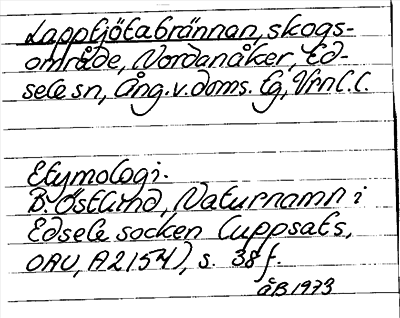 Lapptjötabrännan, skogs-
område, Nordanåker, Ed-
sele sn, Ång. v. doms. lg, Vrnl. l.
Etymologi.
B. Östlind, Naturnamn i
Edsele socken (uppsats,
OAU, A2154), s. 38 f.
åB 1973